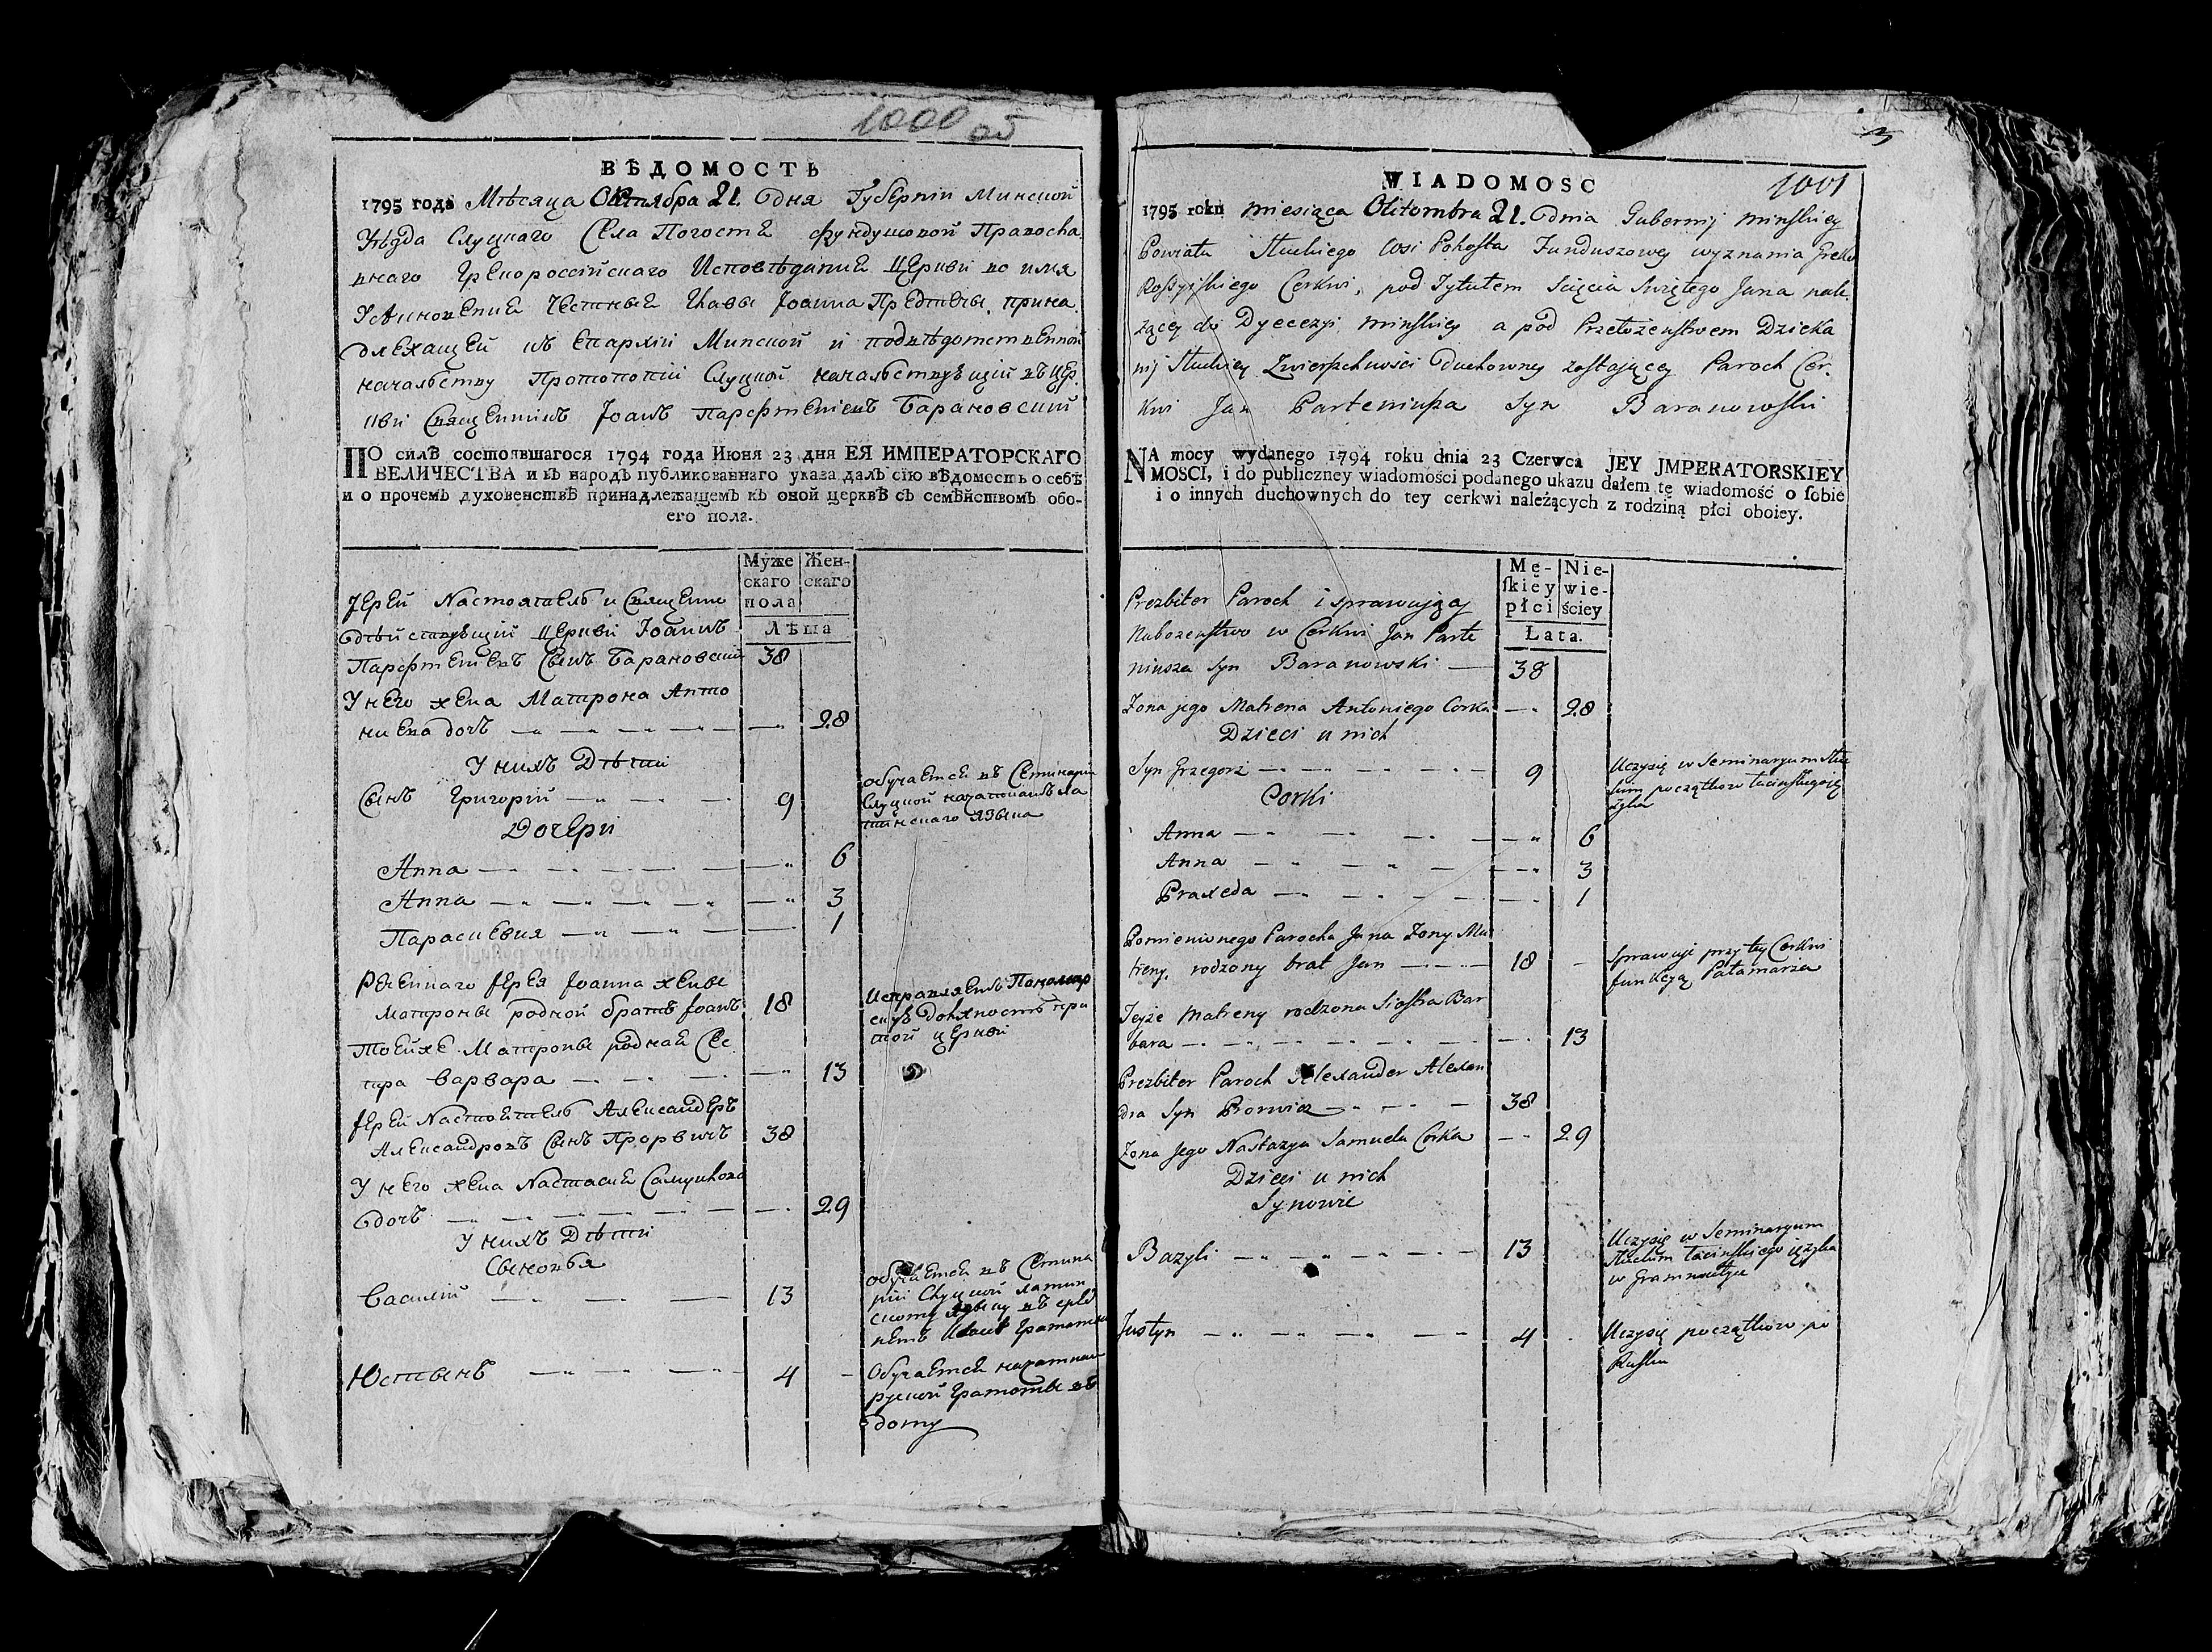 1000 об
ВѢДОМОСТЬ
1795 года Мѣсяца Октября 21. дня Губерніи Минской
Уѣзда Слуцкаго Села Погоста фундушовой Правосла
внаго Грекороссійскаго Исповѣданія Церкви во имя
Усѣкновенія Честныя Главы Іоанна Предтечы, прина
длежащей къ Епархіи Минской и подвѣдомственной
началству Протопопіи Слуцкой началствующій въ цер
кви Священникъ Іоанъ Парфтеніевъ Барановскій
ПО силѣ состоявшагося 1794 года Июня 23 дня ЕЯ ИМПЕРАТОРСКАГО
ВЕЛИЧЕСТВА и въ народъ публикованнаго указа далъ сію вѣдомость о себѣ
и о прочемъ духовенствѣ принадлежащемъ къ оной церквѣ съ семѣйствомъ обо-
его пола.
Муже Жен-
скаго скаго
пола
Лѣта
Іерей Настоятель и Священно
дѣйствующій Церкви Іоаннъ
Парфтеніевъ Сынъ Барановскій 38
У него жена Матрона Анто
ниева дочь 28
У нихъ Дѣти
Сынъ Григорій 9 обучается въ Семинаріи
Слуцкой начаткамъ ла
тинскаго языка
Дочери
Анна 6
Анна 3
Параскевия 1
Реченнаго Іерея Іоанна жены
Матроны родной братъ Іоанъ 18 Исправляетъ Понамар
скую должность при
той церкви
Тоейже Матроны родная Сес
тра Варвара 13
Іерей Настоятель Александеръ
Александровъ Сынъ Прорвичъ 38
У него жена Настасия Самуилова
дочь 29
У нихъ Дѣти
Сыновья
Василій 13 обучается въ Семина
ріи Слуцкой латин
скому языку въ
Юстынъ 4 Обучается начаткам
руской грамоты въ
дому
3
WIADOMOSC 1001
1795 roku miesiąca Oktombra 21. dnia Gubernij minskiey
Powiatu Słuckiego Wsi Pohosta Funduszowey wyznania Greko
Rossyiskiego Cerkwi, pod Tytułem Scięcia Swiętego Jana nale
żącey do Dyecezyi minskiey a pod Przełożenstwem Dzieka
nij Słuckiey Zwierzchnosci duchowney zostaiącey Paroch Cer
kwi Jan Parteniusza Syn Baranowski
NA mocy wydanego 1794 roku dnia 23 Czerwca JEY JMPERATORSKIEY
MOSCI, i do publiczney wiadomości podanego ukazu dałem tę wiadomość o ſobie
i o innych duchownych do tey cerkwi należących z rodziną płci oboiey.
Mę- Nie-
ſkiey wie-
płci ściey
Lata.
Prezbiter Paroch i sprawuiący
Nabozenstwo w Cerkwi Jan Parte
niusza Syn Baranowski 38
Zona jego Matrena Antoniego Corka 28
Dzieci u nich
Syn Grzegorz 9 Uczysię w Seminaryum Słuc
kim początkow łacinskiego ję
zyka
Corki
Anna 6
Anna 3
Praxeda 1
Pomienionego Parocha Jana Zony Ma
treny, rodzony brat Jan 18 Sprawuje przy tey Cerkwi
funkcyą Pałamarza
Tejże Matreny rodzona Siostra Bar
bara 13
Prezbiter Paroch Alexander Alexan
dra Syn Prorwicz 38
Zona Jego Nastazya Samuela Corka 29
Dzieci u nich
Synowie
Bazyli 13 Uczysię w Seminaryum
Słuckim łacinskiego języka
w Grammatyce
Justyn 4 Uczysię początkow po
Rusku